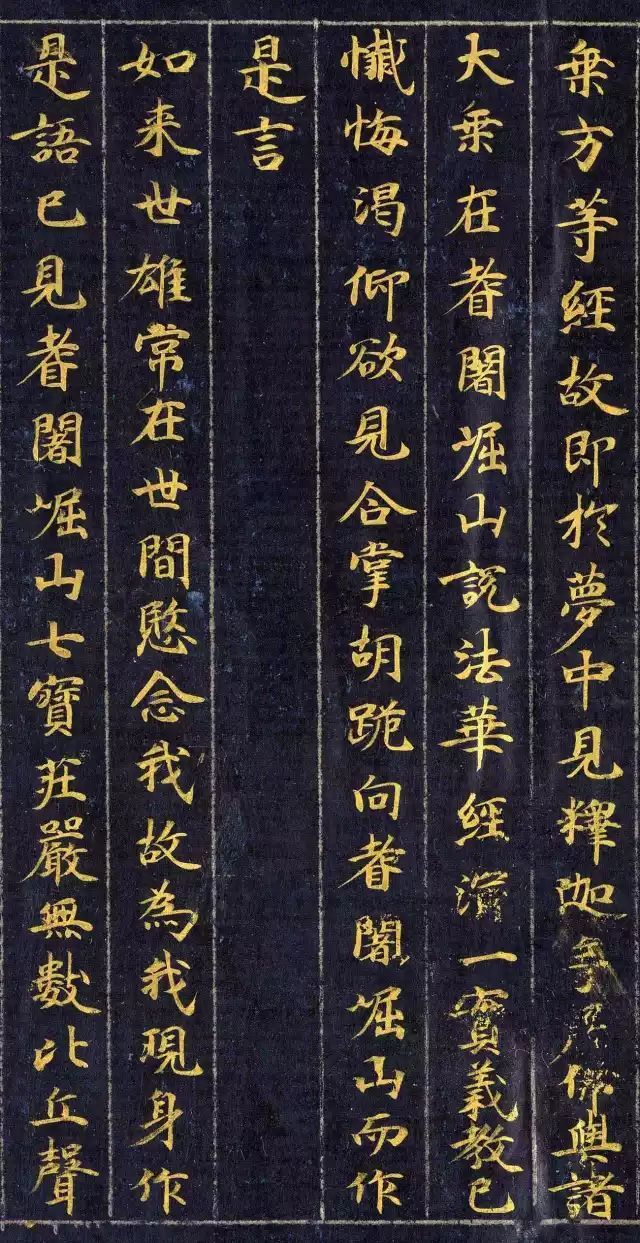 乗方等經故即於夢中見釋迦牟尼佛與諸
大乗在耆闍崛山說法華經演一實義教已
懺悔渴仰欲見合掌胡跪向耆闍崛山而作
是言
如来世雄常在世間愍念我故為我現身作
是語已見耆闍崛山七寶莊嚴無數比丘聲